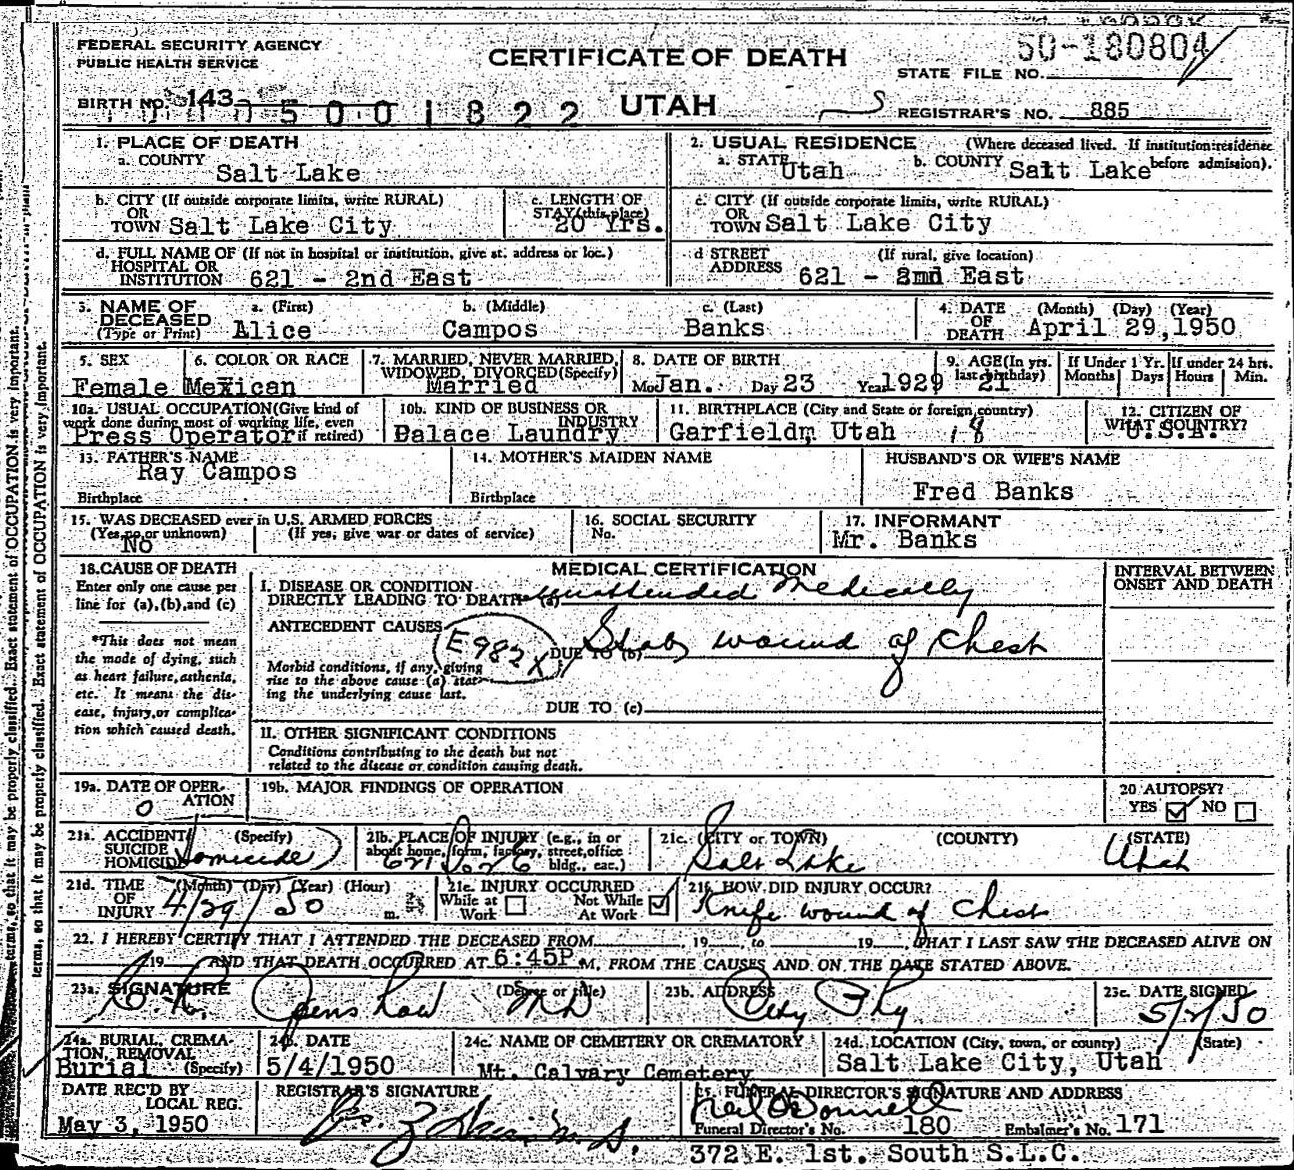 FEDERAL SECURITY AGENCY
PUBLIC HEALTH SERVICE
CERTIFICATE OF DEATH
50-180804
STATE FILE NO.
BIRTH NO. 143
500 1822
UTAH
REGISTRAR'S NO. 885
1. PLACE OF DEATH
a. COUNTY
Salt Lake
2. USUAL RESIDENCE (Where deceased lived. If institution: residence before admission).
a. STATE Utah b. COUNTY Salt Lake
b. CITY (If outside corporate limits, write RURAL)
OR
TOWN Salt Lake City
c. LENGTH OF
STAY (this place)
20 Yrs.
c. CITY (If outside corporate limits, write RURAL)
OR
TOWN Salt Lake City
d. FULL NAME OF (If not in hospital or institution, give st. address or loc.)
HOSPITAL OR
INSTITUTION 621 - 2nd East
d STREET (If rural, give location)
ADDRESS 621 - 2nd East
3. NAME OF DECEASED
(Type or Print)
a. (First) b. (Middle) c. (Last)
Alice Campos Banks
4. DATE OF DEATH (Month) (Day) (Year)
April 29, 1950
5. SEX
Female
6. COLOR OR RACE
Mexican
7. MARRIED, NEVER MARRIED,
WIDOWED, DIVORCED (Specify)
Married
8. DATE OF BIRTH
Mo Jan. Day 23 Year 1929
9. AGE (In yrs. last birthday)
21
If Under 1 Yr.
Months Days
If under 24 hrs.
Hours Min.
10a. USUAL OCCUPATION (Give kind of
work done during most of working life, even
if retired)
Press Operator
10b. KIND OF BUSINESS OR
INDUSTRY
Palace Laundry
11. BIRTHPLACE (City and State or foreign country)
Garfield, Utah 18
12. CITIZEN OF
WHAT COUNTRY?
U.S.A.
13. FATHER'S NAME
Ray Campos
Birthplace
14. MOTHER'S MAIDEN NAME
Birthplace
HUSBAND'S OR WIFE'S NAME
Fred Banks
15. WAS DECEASED ever in U.S. ARMED FORCES
(Yes, no, or unknown) (If yes, give war or dates of service)
No
16. SOCIAL SECURITY
No.
17. INFORMANT
Mr. Banks
18. CAUSE OF DEATH
Enter only one cause per
line for (a), (b), and (c)
*This does not mean
the mode of dying, such
as heart failure, asthenia,
etc. It means the dis-
ease, injury, or complica-
tion which caused death.
MEDICAL CERTIFICATION
INTERVAL BETWEEN
ONSET AND DEATH
I. DISEASE OR CONDITION
DIRECTLY LEADING TO DEATH* (a) unattended Medically
ANTECEDENT CAUSES
E982X
DUE TO (b) Stab wound of chest
Morbid conditions, if any, giving
rise to the above cause (a) stat-
ing the underlying cause last.
DUE TO (c)
II. OTHER SIGNIFICANT CONDITIONS
Conditions contributing to the death but not
related to the disease or condition causing death.
19a. DATE OF OPER-
ATION
0
19b. MAJOR FINDINGS OF OPERATION
20 AUTOPSY?
YES NO
21a. ACCIDENT (Specify)
SUICIDE
HOMICIDE
Homicide
21b. PLACE OF INJURY (e.g., in or
about home, farm, factory, street, office
bldg., etc.)
621 So 2 E
21c. (CITY or TOWN) (COUNTY) (STATE)
Salt Lake Utah
21d. TIME OF INJURY (Month) (Day) (Year) (Hour)
4/29/50 m.
21e. INJURY OCCURRED
While at Work Not While At Work
21f. HOW DID INJURY OCCUR?
Knife wound of chest
22. I HEREBY CERTIFY THAT I ATTENDED THE DECEASED FROM , 19 , to 19 , THAT I LAST SAW THE DECEASED ALIVE ON
19 AND THAT DEATH OCCURRED AT 6:45P M, FROM THE CAUSES AND ON THE DATE STATED ABOVE.
23a. SIGNATURE (Degree or title)
C. R. Openshaw MD
23b. ADDRESS
City Phy
23c. DATE SIGNED
5/2/50
24a. BURIAL, CREMA-
TION, REMOVAL
(Specify)
Burial
24b. DATE
5/4/1950
24c. NAME OF CEMETERY OR CREMATORY
Mt. Calvary Cemetery
24d. LOCATION (City, town, or county) (State)
Salt Lake City, Utah
DATE REC'D BY
LOCAL REG.
May 3, 1950
REGISTRAR'S SIGNATURE
M.D.
25. FUNERAL DIRECTOR'S SIGNATURE AND ADDRESS
Neil O'Donnell
Funeral Director's No. 180 Embalmer's No. 171
372 E. 1st. South S.L.C.